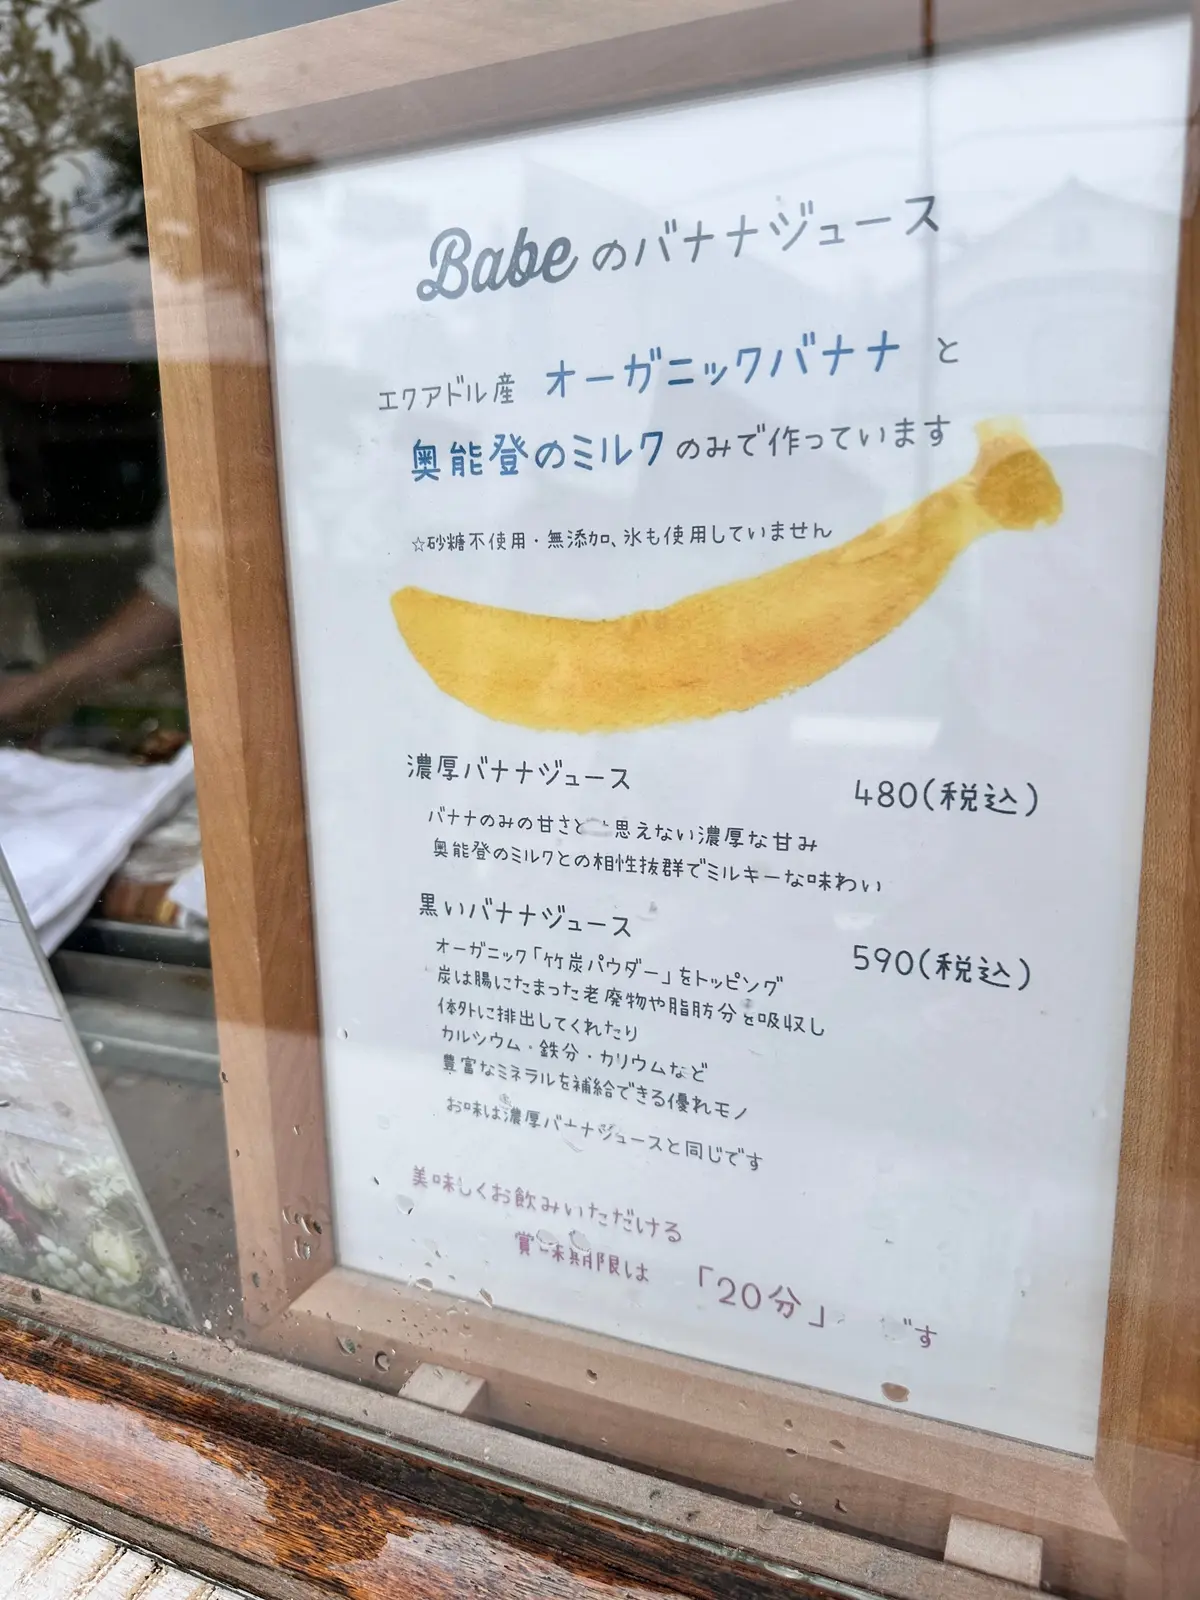 Babeのバナナジュース
エクアドル産 オーガニックバナナ と
奥能登のミルクのみで作っています
☆砂糖不使用・無添加、氷も使用していません
濃厚バナナジュース 480(税込)
バナナのみの甘さと 思えない濃厚な甘み
奥能登のミルクとの相性抜群でミルキーな味わい
黒いバナナジュース 590(税込)
オーガニック「竹炭パウダー」をトッピング
炭は腸にたまった老廃物や脂肪分を吸収し
体外に排出してくれたり
カルシウム・鉄分・カリウムなど
豊富なミネラルを補給できる優れモノ
お味は濃厚バナナジュースと同じです
美味しくお飲みいただける
賞味期限は 「20分」 です